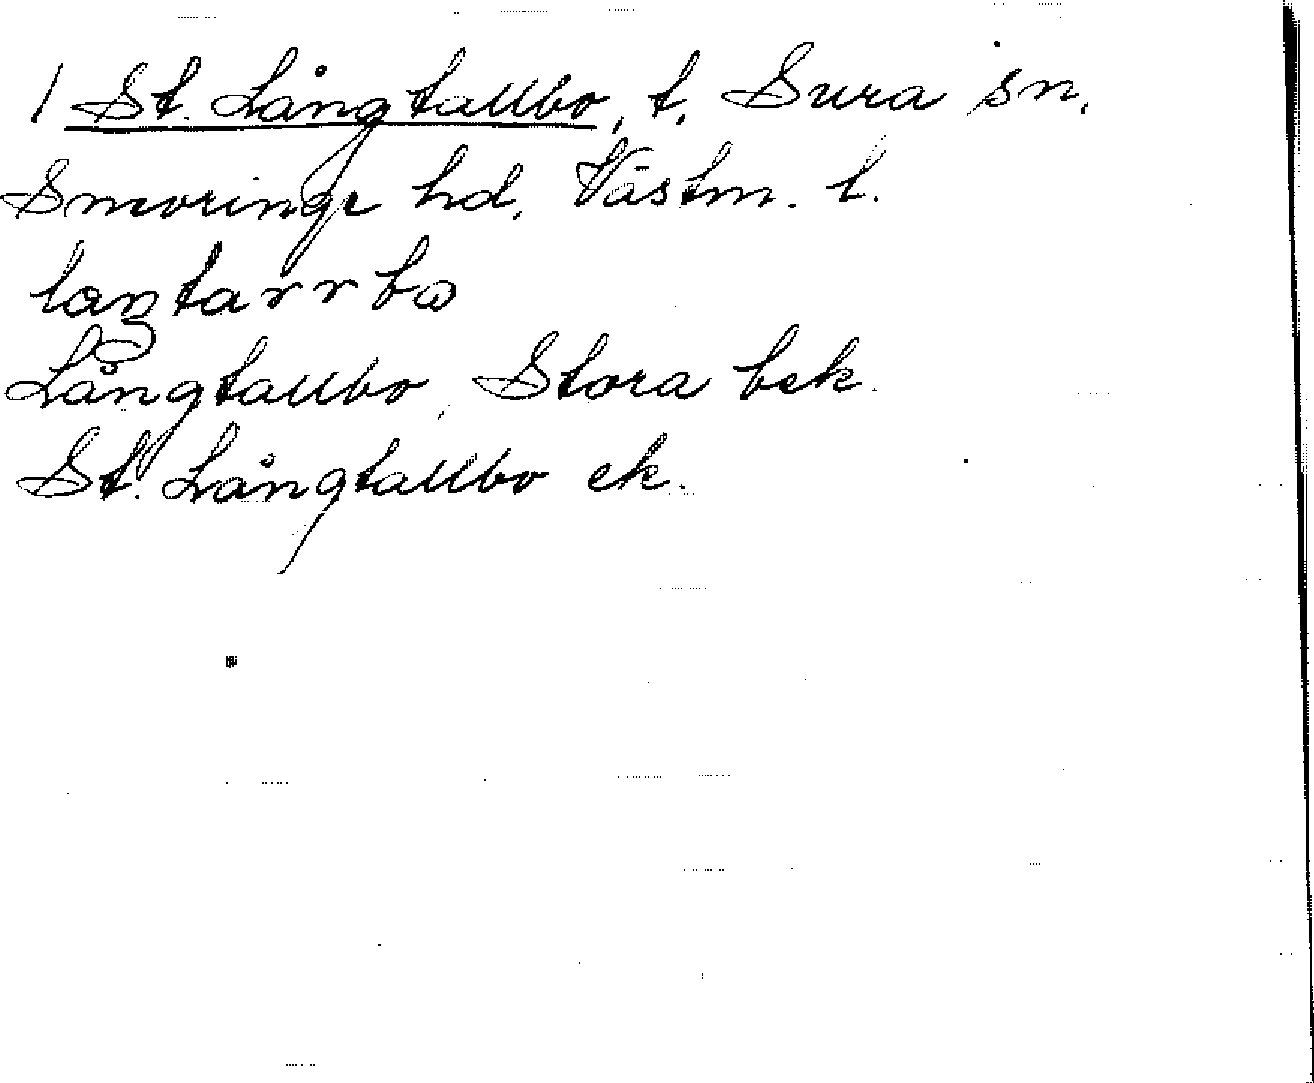 1 St. Långtallbo, t. Sura sn,
Snevringe hd, Västm. l.
Långtallbo, Stora bek.
St. Långtallbo ek.